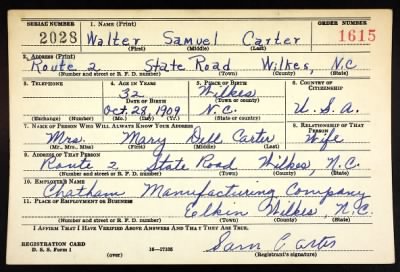 SERIAL NUMBER 1. NAME (Print) ORDER NUMBER
2028 Walter Samuel Carter 1615
(First) (Middle) (Last)
2. ADDRESS (Print)
Route 2 State Road Wilkes, N.C
(Number and street or R. F. D. number) (Town) (County) (State)
3. TELEPHONE 4. AGE IN YEARS 5. PLACE OF BIRTH 6. COUNTRY OF CITIZENSHIP
32 Wilkes
DATE OF BIRTH (Town or county)
Oct. 28, 1909 N.C. U.S.A.
(Exchange) (Number) (Mo.) (Day) (Yr.) (State or country)
7. NAME OF PERSON WHO WILL ALWAYS KNOW YOUR ADDRESS 8. RELATIONSHIP OF THAT PERSON
Mrs. Mary Dell Carter Wife
(Mr., Mrs., Miss) (First) (Middle) (Last)
9. ADDRESS OF THAT PERSON
Route 2. State Road Wilkes, N.C.
(Number and street or R. F. D. number) (Town) (County) (State)
10. EMPLOYER'S NAME
Chatham Manufacturing Company
11. PLACE OF EMPLOYMENT OR BUSINESS
Elkin Wilkes, N.C.
(Number and street or R. F. D. number) (Town) (County) (State)
I AFFIRM THAT I HAVE VERIFIED ABOVE ANSWERS AND THAT THEY ARE TRUE.
REGISTRATION CARD
D. S. S. Form 1 (over) Sam Carter
(Registrant's signature)